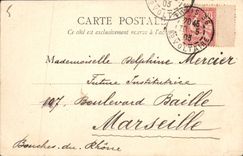 CARTE POSTALE
Ce côté est exclusivement réservé à l'adresse
Mademoiselle Delphine Mercier
Future Institutrice
107, Boulevard Baille
Marseille
Bouches-du-Rhône